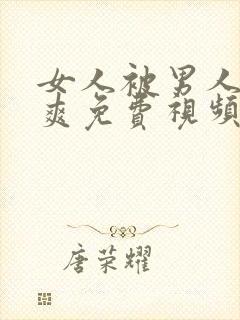 女人被男人
爽免費視頻
唐荣耀